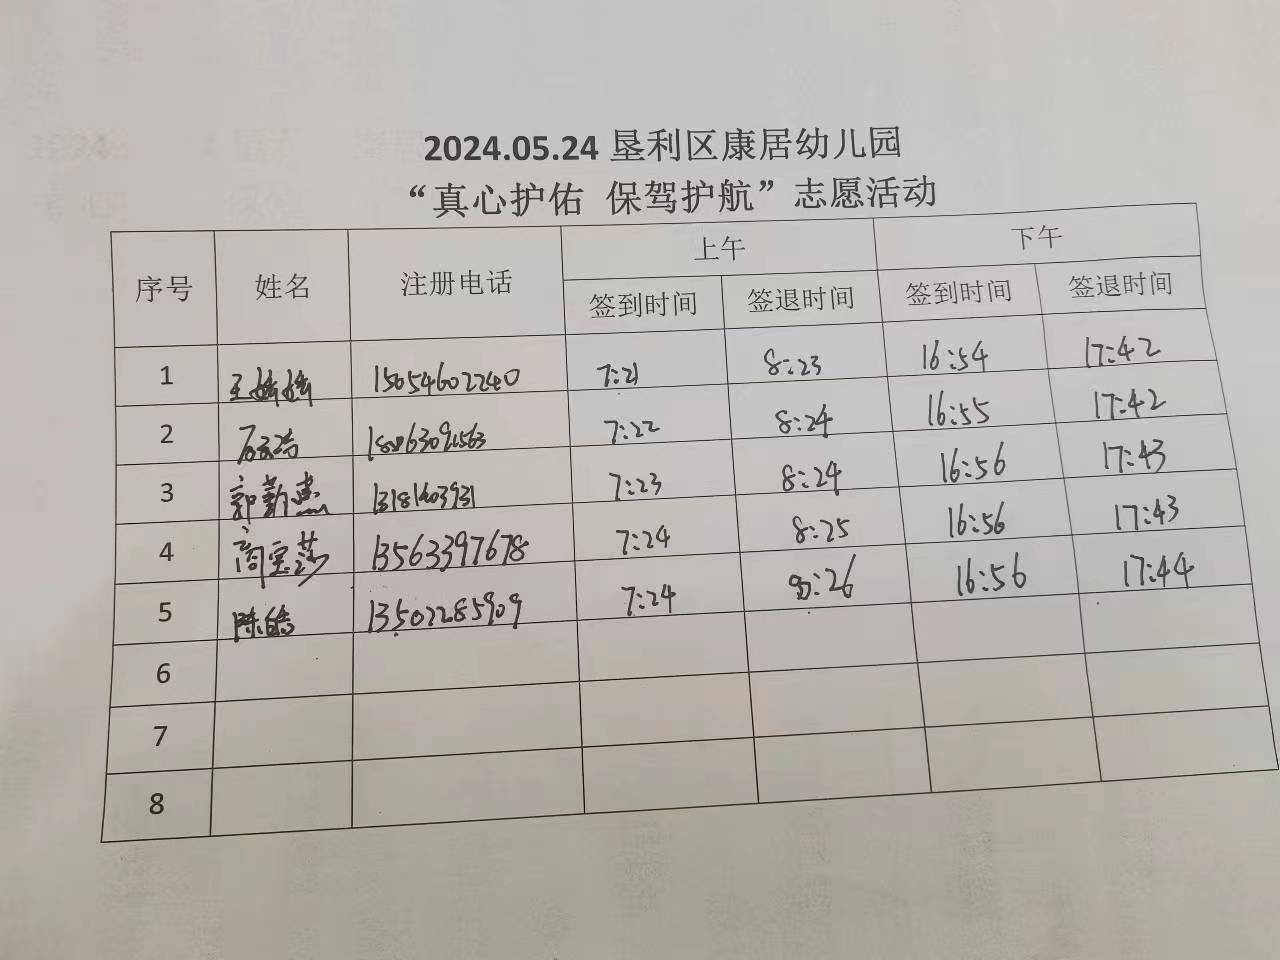 2024.05.24 垦利区康居幼儿园
“真心护佑 保驾护航”志愿活动
序号 姓名 注册电话 上午 下午
签到时间 签退时间 签到时间 签退时间
1 王婷婷 15054602240 7:21 8:23 16:54 17:42
2 7:22 8:24 16:55 17:42
3 郭勤惠 7:23 8:24 16:56 17:43
4 13563397678 7:24 8:25 16:56 17:43
5 陈皓 13502285909 7:24 8:26 16:56 17:44
6
7
8